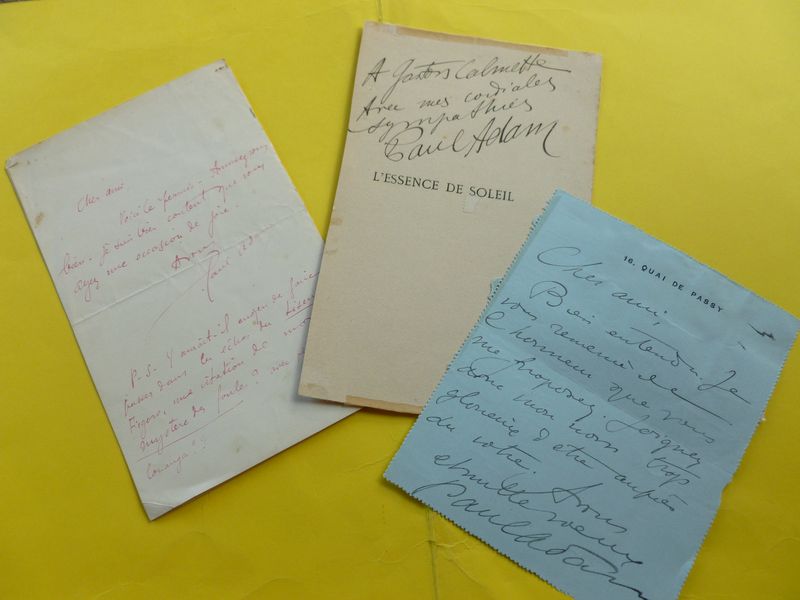 Cher ami
Voici le permis.
bien. Je suis bien content que vous
ayez une occasion de joie
Paul Adam
P.S. Y aurait-il moyen de faire
passer dans les échos du
Figaro, une citation de
mystère des foules ? avec
A Gaston Calmette
Avec mes cordiales
sympathies
Paul Adam
L'ESSENCE DE SOLEIL
16, QUAI DE PASSY
Cher ami,
Bien entendu. Je
vous remercie de
l'honneur que vous
me proposez. Joignez
donc mon nom trop
glorieux d'être auprès
du vôtre. A vous
et mille voeux
Paul Adam